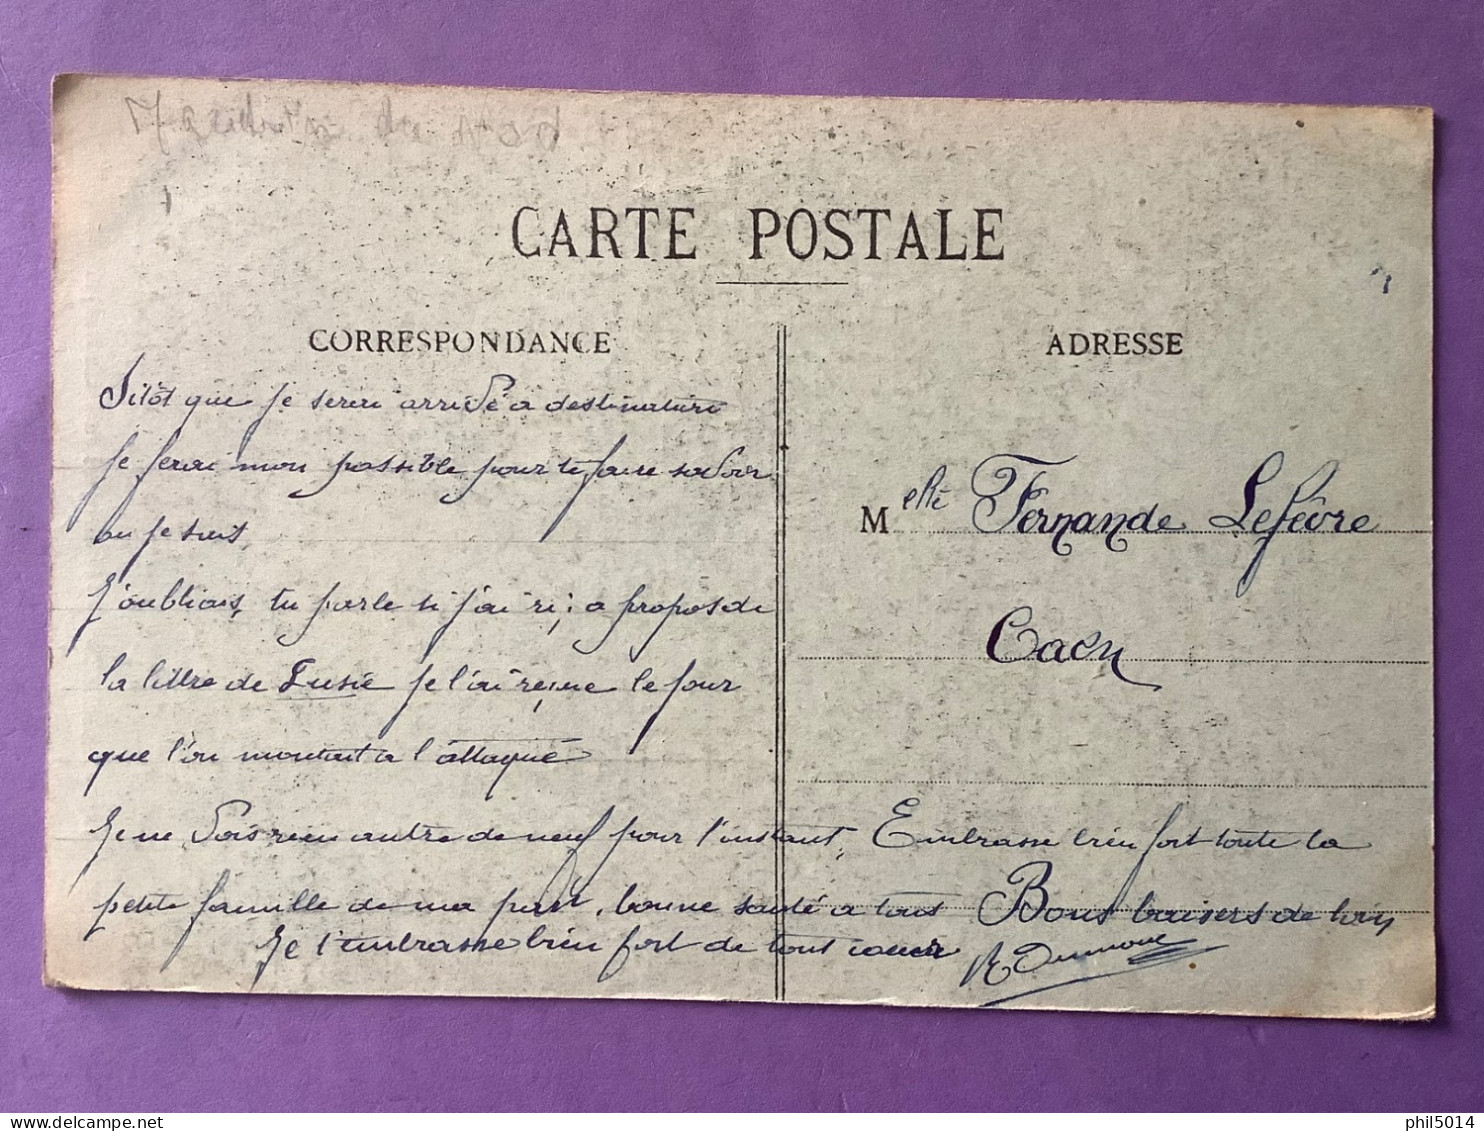 CARTE POSTALE
CORRESPONDANCE
ADRESSE
Sitôt que je serai arrivé a destination
je ferai mon possible pour te faire savoir
ou je suis,
J'oubliais, tu parle si j'ai ri; a propos de
la lettre de Lusie je l'ai reçue le jour
que l'on montait a l'attaque
Je ne vois rien autre de neuf pour l'instant, Embrasse bien fort toute la
petite famille de ma part, bonne santé a tous Bons baisers de loin
Je t'embrasse bien fort de tout coeur
Melle Fernande Lefèvre
Caen
phil5014